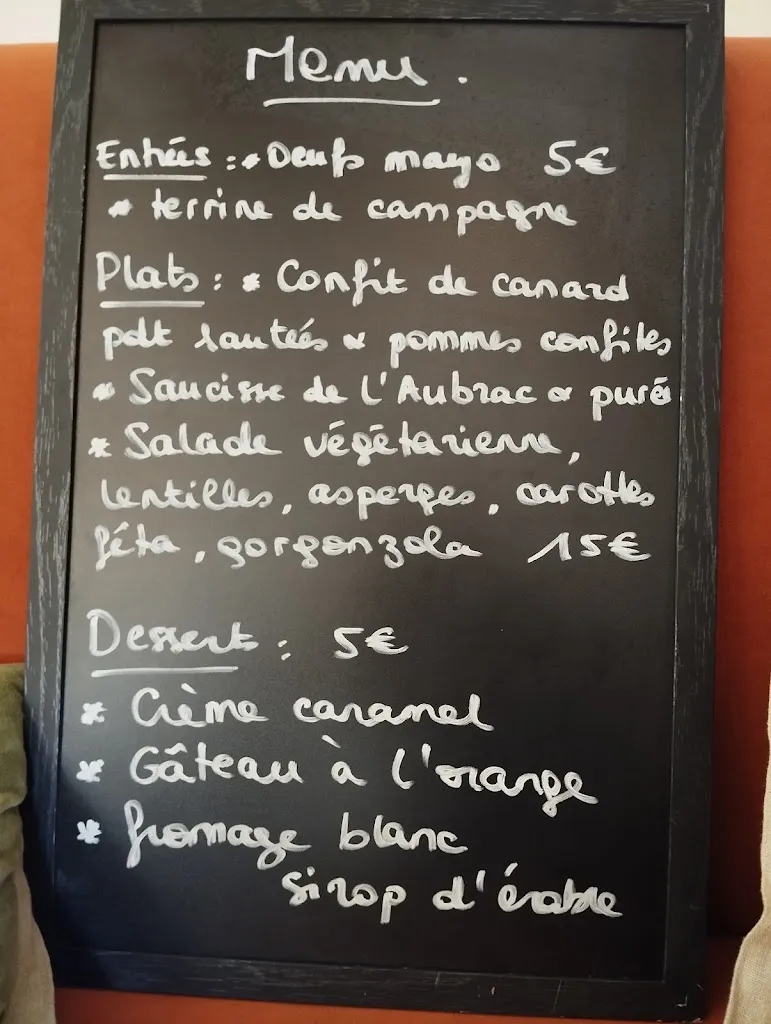 Menu.
Entrées : * Oeufs mayo 5€
* terrine de campagne
Plats : * Confit de canard
pdt sautées & pommes confites
* Saucisse de l'Aubrac & purée
* Salade végétarienne,
lentilles, asperges, carottes
féta, gorgonzola 15€
Dessert : 5€
* Crème caramel
* Gâteau à l'orange
* fromage blanc
sirop d'érable